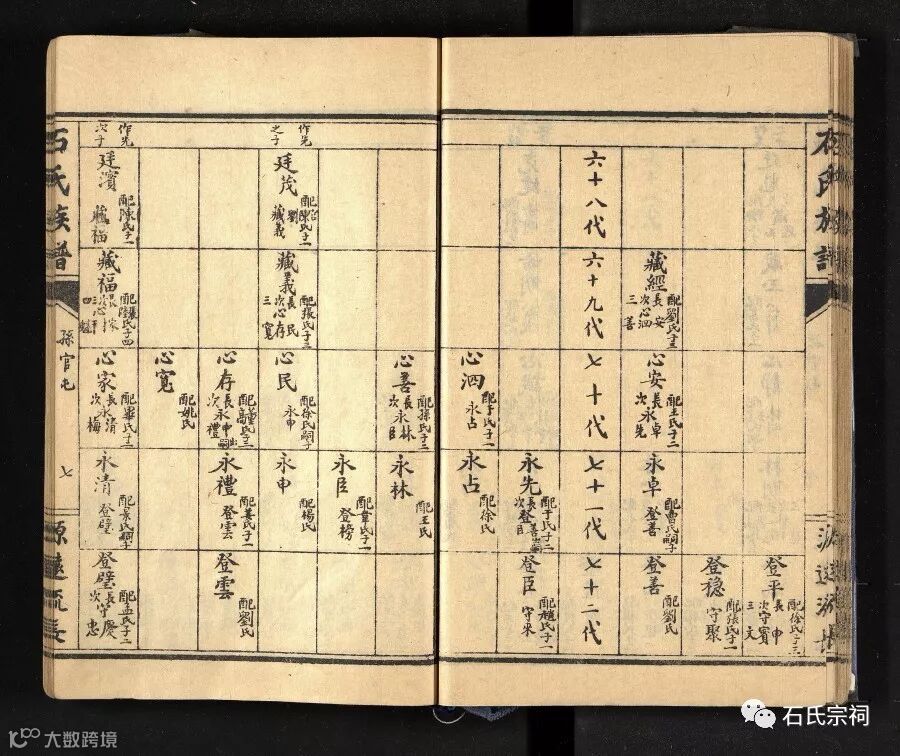 石氏族譜
六十八代
六十九代
七十代
七十一代
七十二代
登平
配徐氏子三
長守申
次守賓
三守文
登稳
配張氏子一
守聚
藏經
配劉氏子三
長心安
次心泗
三心善
心安
配王氏子二
長永卓
次永先
永卓
配曹氏嗣子
登善
登善
配劉氏
永先
配于氏子二
長登善出嗣
次登臣
登臣
配趙氏子一
守來
心泗
配于氏子一
永占
永占
配徐氏
心善
配孫氏子二
長永林
次永臣
永林
配王氏
永臣
配韋氏子一
登榜
作先之子
廷茂
藏義
藏義
配張氏子三
長心民
次心存
三心寬
心民
配徐氏嗣子
永申
永申
配楊氏
心存
長永申出嗣
次永禮
永禮
配姜氏子一
登雲
登雲
配劉氏
心寬
配姚氏
作先次子
廷濱
配陳氏子一
藏福
藏福
心家
配畢氏子二
長永清
次永梅
永清
配吳氏嗣子
登璧
登璧
配孟氏子二
長守慶
次守忠
石氏族譜
孫官屯
七
源遠流長
石氏宗祠
大数跨境